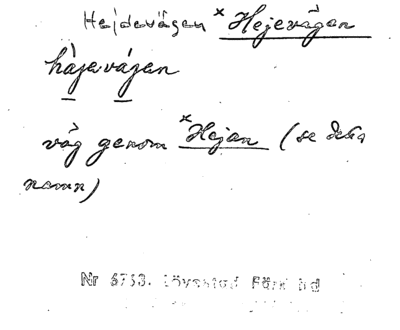 Hejdevägen × Hejevägen
hàjevágen
väg genom ×Hejan (se detta
namn)
Nr 6753. Lövestad Färs hd